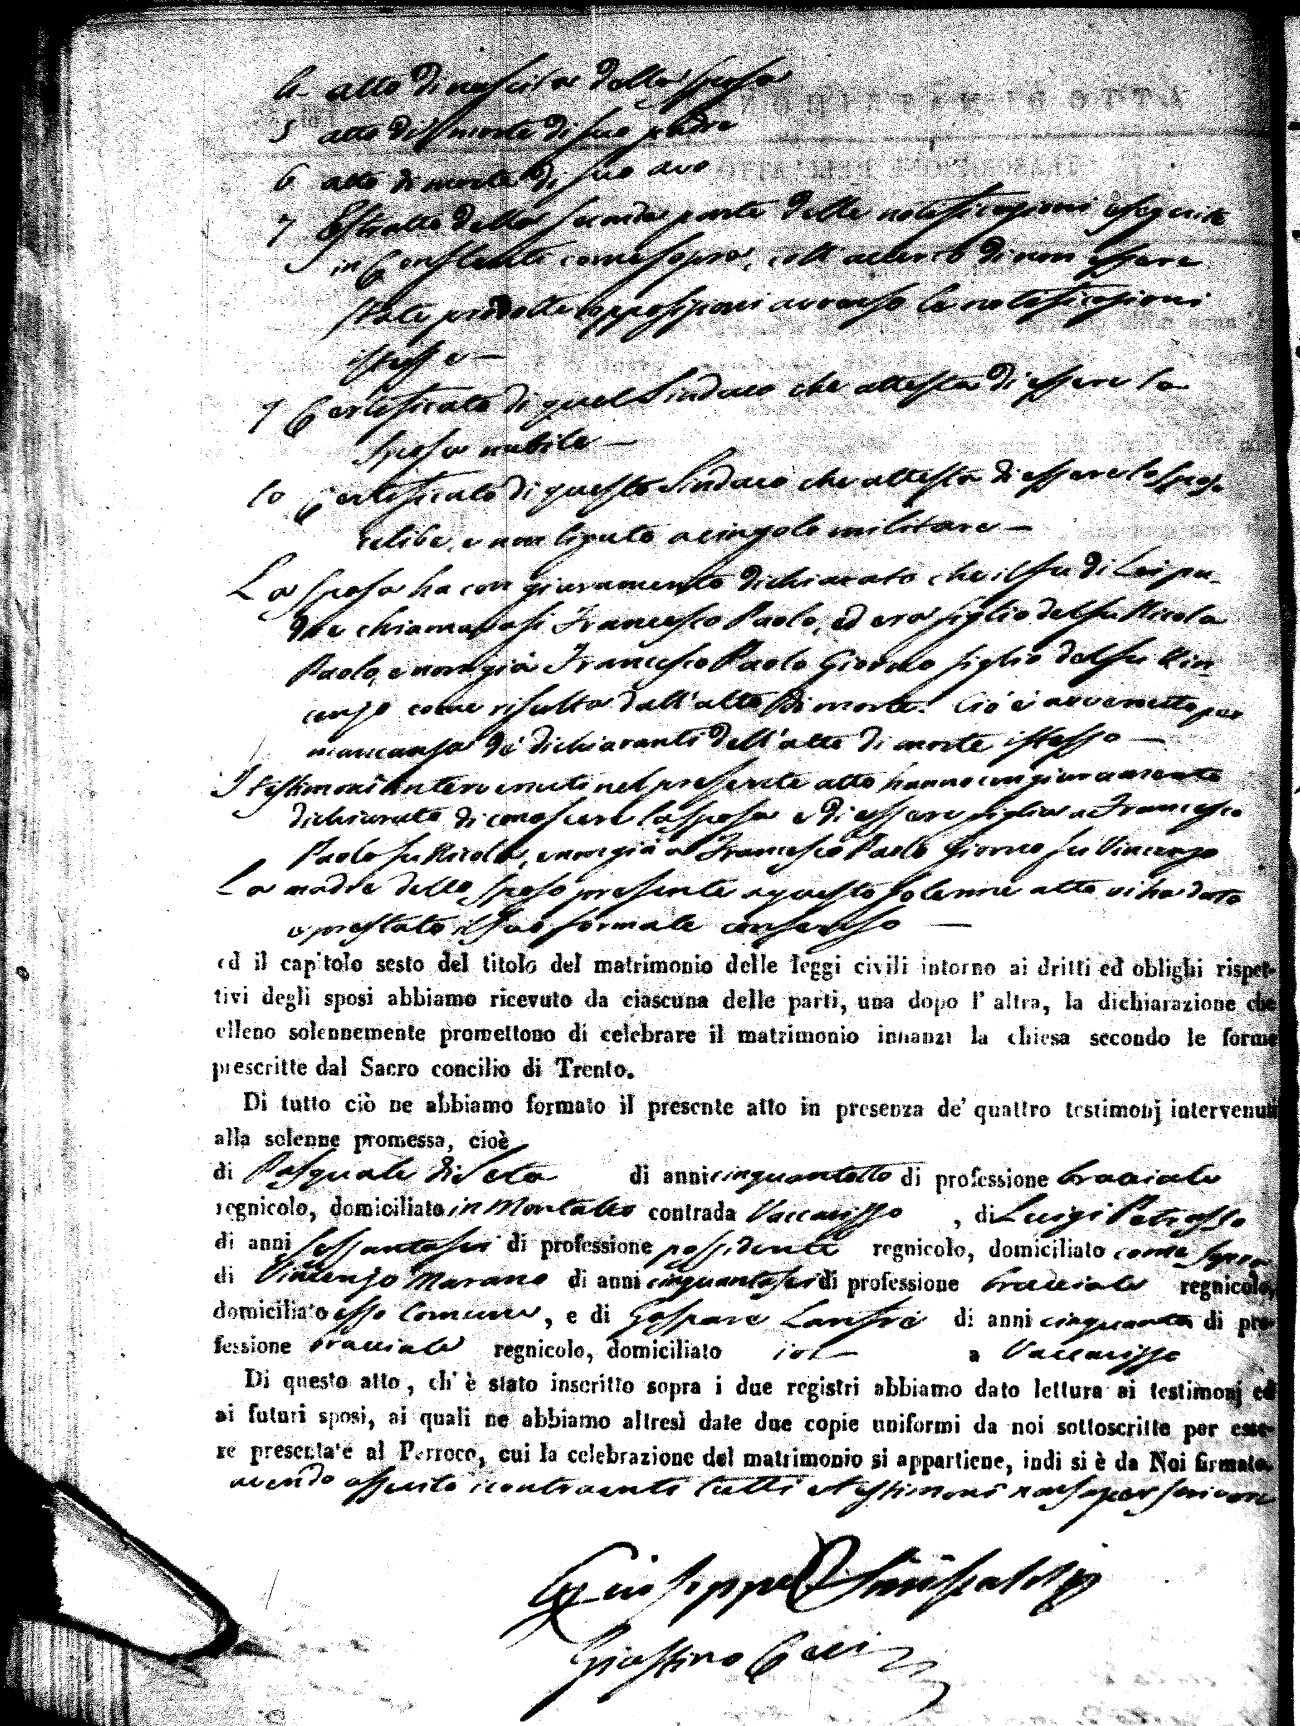 4 atto di nascita della sposa
5 atto di morte di suo padre
6 atto di morte di suo avo
7 Estratto della seconda parte delle notificazioni eseguite
in come sopra, coll' di non essere
state prodotte opposizioni avverso le notificazioni
istesse —
9 Certificato di quel Sindaco che attesta di essere la
sposa nubile —
10 Certificato di questo Sindaco che attesta di essere lo sposo
celibe, e non ligato a cingolo militare —
La sposa ha con giuramento dichiarato che il fu di Lei pa-
dre chiamavasi Francesco Paolo, ed era figlio del fu Nicola
Paolo, e non già Francesco Paolo Giorno figlio del fu Vin-
cenzo come risulta dall' atto di morte. Ciò è avvenuto per
mancanza de' dichiaranti dell' atto di morte istesso —
I testimoni intervenuti nel presente atto hanno con giuramento
dichiarato di conoscere la sposa e di essere figlia a Francesco
Paolo fu Nicola, e non già a Francesco Paolo Giorno fu Vincenzo
La madre dello sposo presente a questo solenne atto vi ha dato
o prestato il suo formale consenso —
ed il capitolo sesto del titolo del matrimonio delle leggi civili intorno ai dritti ed oblighi rispet-
tivi degli sposi abbiamo ricevuto da ciascuna delle parti, una dopo l' altra, la dichiarazione che
elleno solennemente promettono di celebrare il matrimonio innanzi la chiesa secondo le forme
prescritte dal Sacro concilio di Trento.
Di tutto ciò ne abbiamo formato il presente atto in presenza de' quattro testimonj intervenuti
alla solenne promessa, cioè
di Pasquale di Seta di anni cinquantotto di professione bracciale
regnicolo, domiciliato in Montalto contrada Vaccarizzo , di Luigi Petrasso
di anni sessantasei di professione possidente regnicolo, domiciliato come sopra
di Vincenzo Marano di anni cinquantasei di professione bracciale regnicolo,
domiciliato esso Comune , e di Gaspare di anni cinquanta di pro-
fessione bracciale regnicolo, domiciliato ivi a Vaccarizzo
Di questo atto, ch' è stato inscritto sopra i due registri abbiamo dato lettura ai testimonj ed
ai futuri sposi, ai quali ne abbiamo altresì date due copie uniformi da noi sottoscritte per esse-
re presentate al Parroco, cui la celebrazione del matrimonio si appartiene, indi si è da Noi firmato
avendo asserito i contraenti tutti e testimoni non saper scrivere
Giuseppe